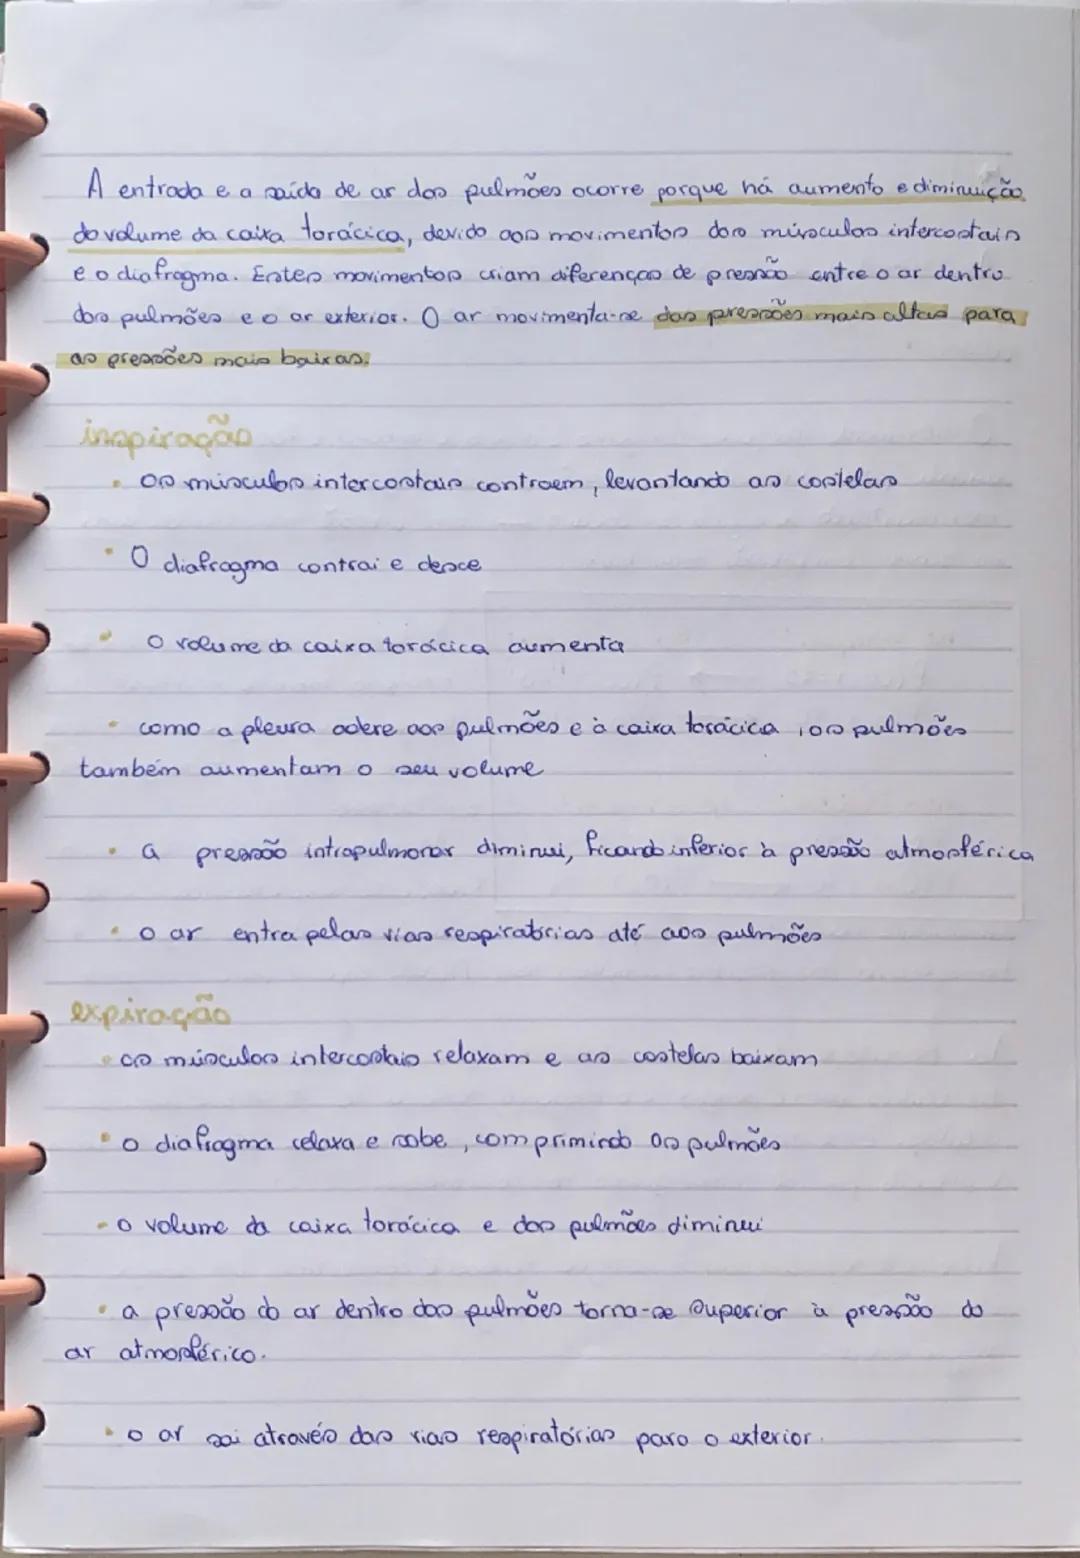 A entrada e a saída de ar dos pulmões ocorre porque há aumento e diminuição
do volume da caixa torácica, devido aos movimentos dos músculos intercostais
e o diafragma. Estes movimentos criam diferenças de pressão entre o ar dentro
dos pulmões e o ar exterior. O ar movimenta-se das pressões mais altas para
as pressões mais baixas.
inspiração
• os músculos intercostais contraem, levantando as costelas
• O diafragma contrai e desce
• o volume da caixa torácica aumenta
• como a pleura adere aos pulmões e à caixa torácica, os pulmões
também aumentam o seu volume
• a pressão intrapulmonar diminui, ficando inferior à pressão atmosférica
• o ar entra pelas vias respiratórias até aos pulmões
expiração
• os músculos intercostais relaxam e as costelas baixam
• o diafragma relaxa e sobe, comprimindo os pulmões
• o volume da caixa torácica e dos pulmões diminui
• a pressão do ar dentro dos pulmões torna-se superior à pressão do
ar atmosférico.
• o ar sai através das vias respiratórias para o exterior.